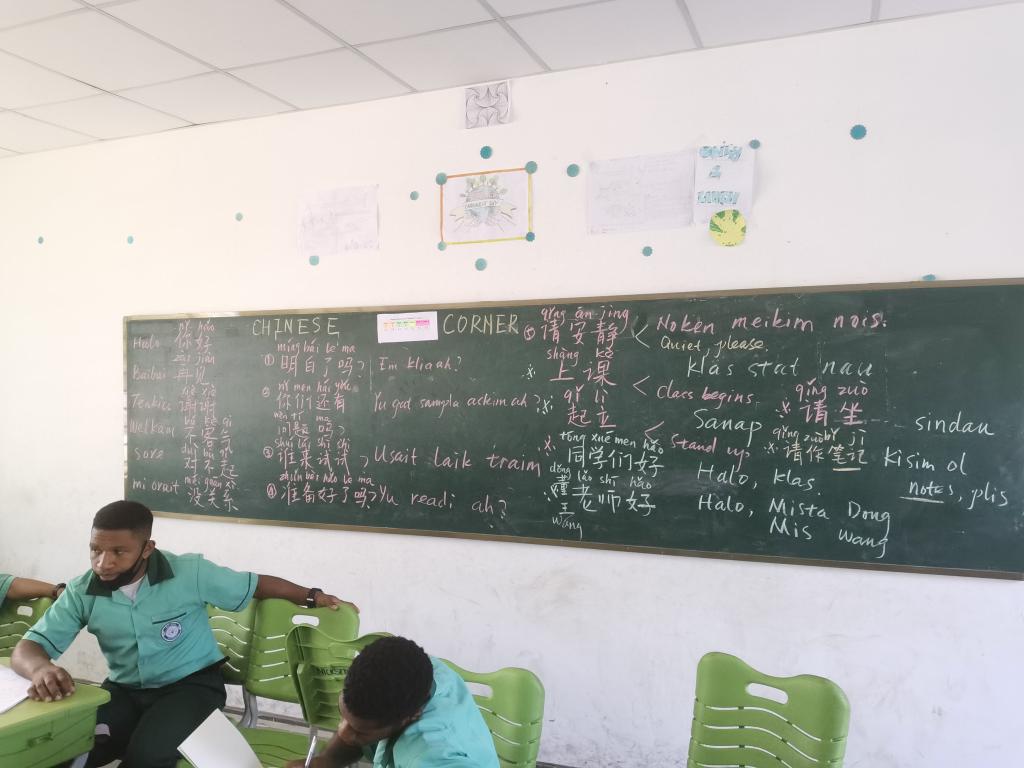 CHINESE CORNER
nǐ hǎo
Halo 你好
zài jiàn
Baibai 再见
xiè xiè
Tenkiu 谢谢
bù kè qi
Welkam 不客气
duì bù qǐ
sore 对不起
méi guān xi
mi orait 没关系
míng bái le ma
① 明白了吗? Em klia ah?
nǐ men hái yǒu
② 你们还有 Yu gat sampla askim ah?
wèn tí ma
问题吗?
shuí lái shì shì
③ 谁来试试? Usait laik traim
zhǔn bèi hǎo le ma
④ 准备好了吗? Yu readi ah?
qǐng ān jìng
⑤ 请安静 < Noken meikim nois.
Quiet please.
shàng kè
※ 上课 < Klas stat nau
Class begins
qǐ lì
※ 起立 < Sanap
Stand up
qǐng zuò
※ 请坐 sindau
qǐng zuò bǐ jì
※ 请作笔记 Kisim ol
notes, plis
tóng xué men hǎo
※ 同学们好 Halo, klas.
dǒng lǎo shī hǎo
※ 董老师好 Halo, Mista Dong
王 Mis Wang
wáng